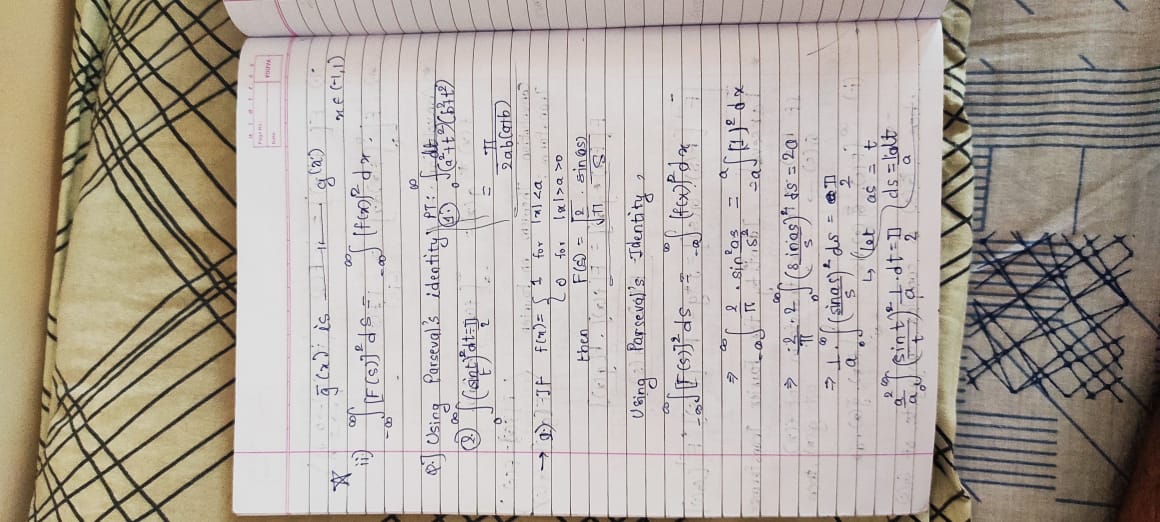 ḡ(x) is ———"——— g(x)
x ∈ (-1,1)
☆ ii) ∫_{-∞}^{∞} [F(s)]² ds = ∫_{-∞}^{∞} [f(x)]² dx.
Q.] Using Parseval's identity PT: ① ∫_0^∞ dt/(a²+t²)(b²+t²) = π/2ab(a+b)
② ∫_0^∞ (sint/t)² dt = π/2
→ If f(x) = { 1 for |x| < a
0 for |x| > a > 0
then F(s) = √(2/π) · sin(as)/s
Using Parseval's Identity,
∫_{-∞}^{∞} [F(s)]² ds = ∫_{-∞}^{∞} [f(x)]² dx
⇒ ∫_{-∞}^{∞} 2/π · sin²as/s² = ∫_{-a}^{a} [1]² dx
⇒ 2/π · 2 ∫_0^∞ (sinas/s)² ds = 2a
⇒ 1/a ∫_0^∞ (sinas/s)² ds = π/2
↳ (let as = t
a²/a ∫_0^∞ (sint/t)² 1/a · dt = π/2) ds = dt/a